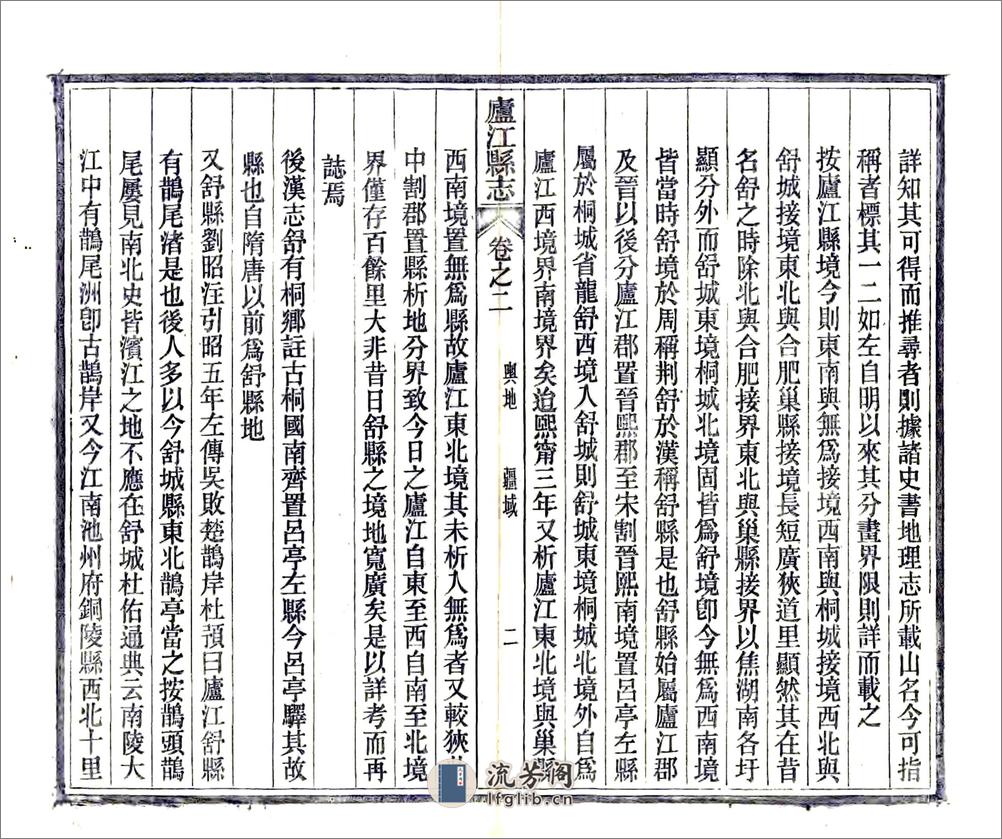 詳知其可得而推尋者則據諸史書地理志所載山名今可指
稱者標其一二如左自明以來其分畫界限則詳而載之
按廬江縣境今則東南與無爲接境西南與桐城接境西北與
舒城接境東北與合肥巢縣接境長短廣狹道里顯然其在昔
名舒之時除北與合肥接界東北與巢縣接界以焦湖南各圩
顯分外而舒城東境桐城北境固皆爲舒境卽今無爲西南境
皆當時舒境於周稱荆舒於漢稱舒縣是也舒縣始屬廬江郡
及晉以後分廬江郡置晉熙郡至宋割晉熙南境置呂亭左縣
屬於桐城省龍舒西境入舒城則舒城東境桐城北境外自爲
廬江西境界南境界矣迨熙甯三年又析廬江東北境與巢縣
廬江縣志 卷之二 輿地 疆域 二
西南境置無爲縣故廬江東北境其未析入無爲者又較狹
中割郡置縣析地分界致今日之廬江自東至西自南至北境
界僅存百餘里大非昔日舒縣之境地寬廣矣是以詳考而再
誌焉
後漢志舒有桐鄉註古桐國南齊置呂亭左縣今呂亭驛其故
縣也自隋唐以前爲舒縣地
又舒縣劉昭注引昭五年左傳吳敗楚鵲岸杜預曰廬江舒縣
有鵲尾渚是也後人多以今舒城縣東北鵲亭當之按鵲頭鵲
尾屢見南北史皆濱江之地不應在舒城杜佑通典云南陵大
江中有鵲尾洲卽古鵲岸又今江南池州府銅陵縣西北十里
流芳閣
lfglib.cn